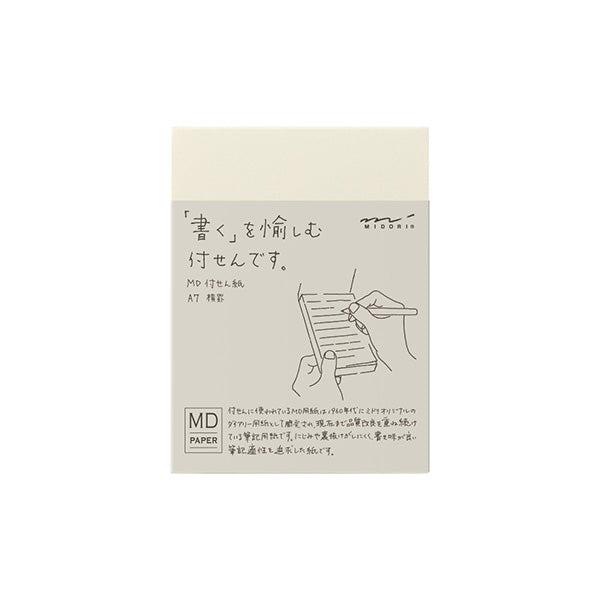 「書く」を愉しむ
付せんです。
MD 付せん紙
A7 横罫
MIDORI
MD
PAPER
付せんに使われているMD用紙は1960年代にミドリオリジナルの
ダイアリー用紙として開発され、現在まで品質改良を重ね続け
ている筆記用紙です。にじみや裏抜けがしにくく、書き味が良い
筆記適性を追求した紙です。